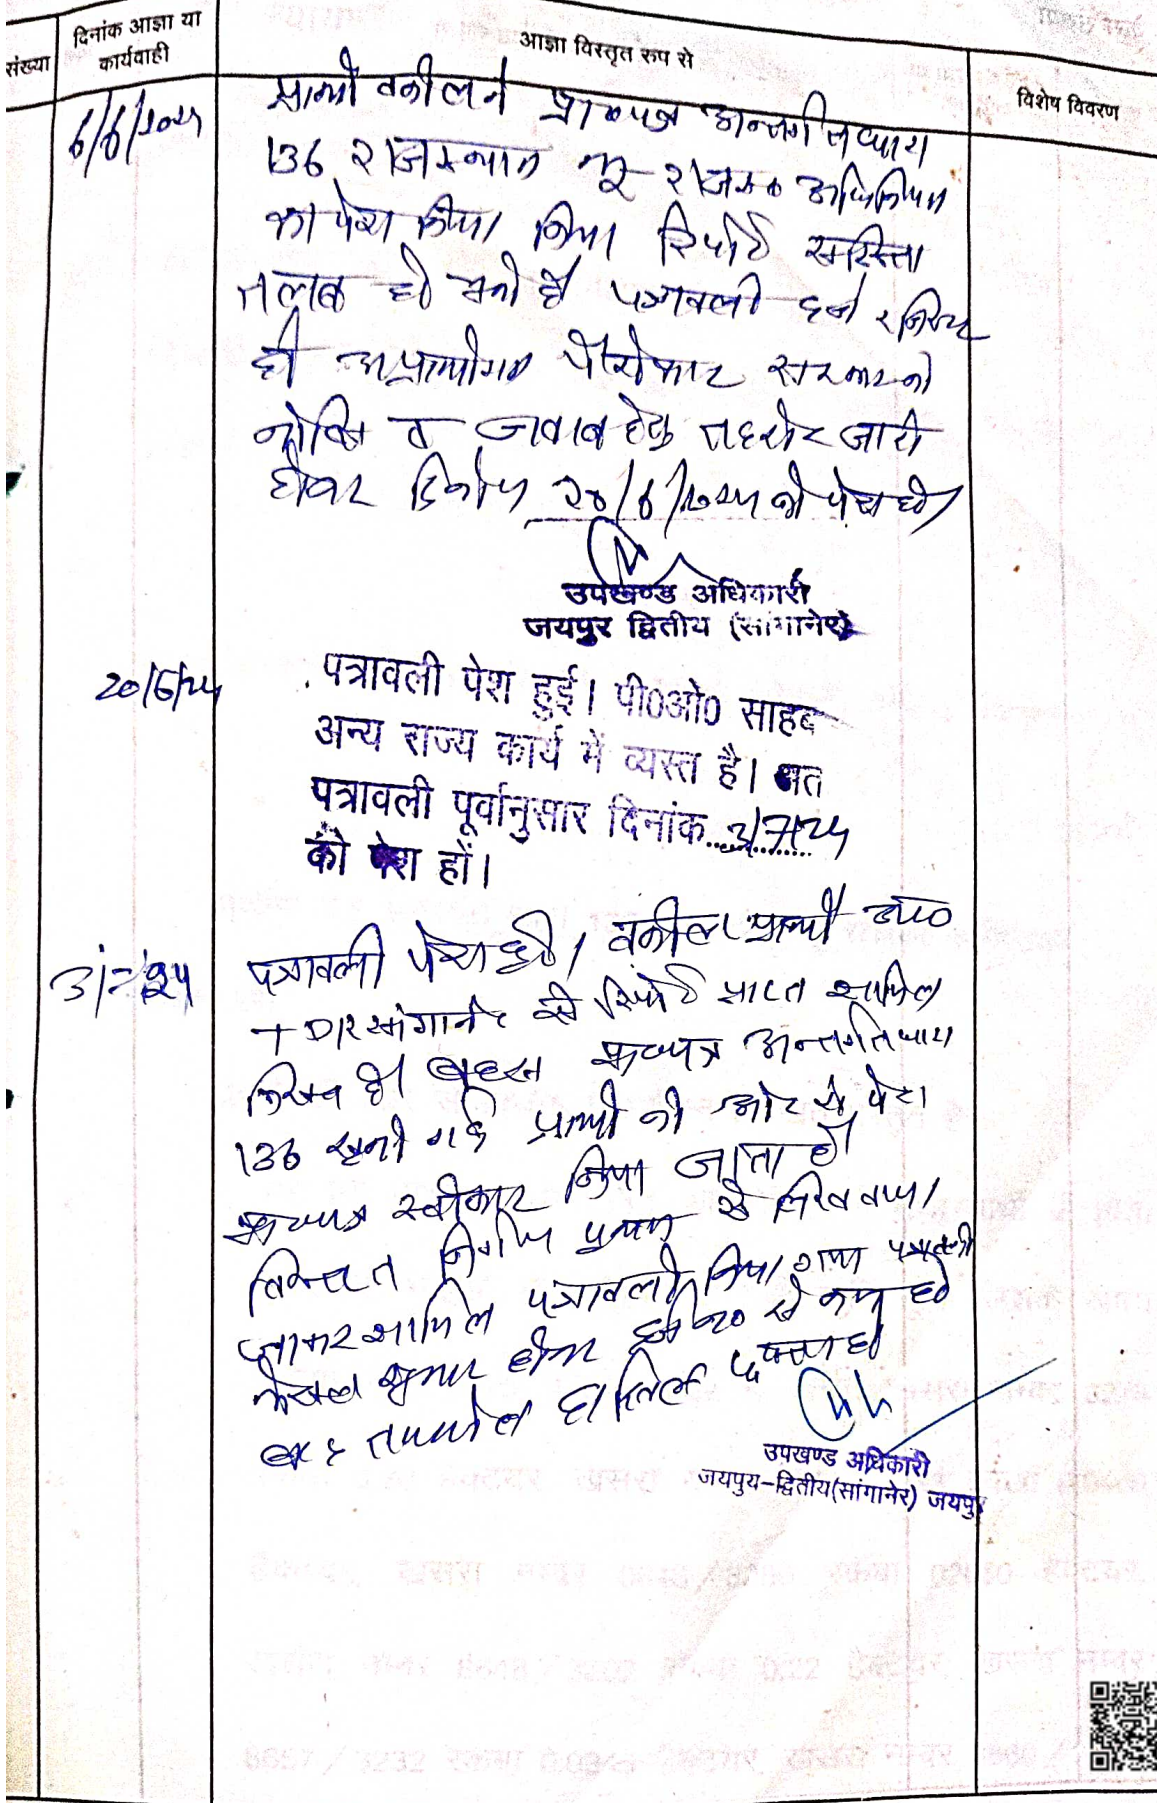 दिनांक आज्ञा या
कार्यवाही
संख्या
आज्ञा विस्तृत रूप से
विशेष विवरण
6/6/2025
प्रार्थी वकील ने प्रा०पत्र अन्तर्गत धारा
136 राजस्थान भू-राजस्व अधिनियम
का पेश किया रिपोर्ट
तलब हो पत्रावली दर्ज रजिस्टर
हो अप्रार्थीगण पैरोकार सरकार को
नोटिस व जवाब हेतु तहरीर जारी
होकर दिनांक 20/6/2025 को पेश हो।
उपखण्ड अधिकारी
जयपुर द्वितीय (सांगानेर)
20/6/25
पत्रावली पेश हुई। पी0ओ0 साहब
अन्य राज्य कार्य में व्यस्त है। अत
पत्रावली पूर्वानुसार दिनांक..3/7/25
को पेश हों।
3/7/25
पत्रावली पेश हुई। वकील प्रार्थी उप०
TDR सांगानेर से रिपोर्ट प्राप्त शामिल
मिसल है। बहस प्रा०पत्र अन्तर्गत धारा
136 सुनी गई प्रार्थी की ओर से पेश
प्रा०पत्र स्वीकार किया जाता है
विस्तृत निर्णय पृथक से लिखवाया
जाकर शामिल पत्रावली किया गया पत्रावली
फैसल शुमार होकर से कम हो
बाद तकमील दाखिल दफ्तर हो
उपखण्ड अधिकारी
जयपुय-द्वितीय(सांगानेर) जयपुर